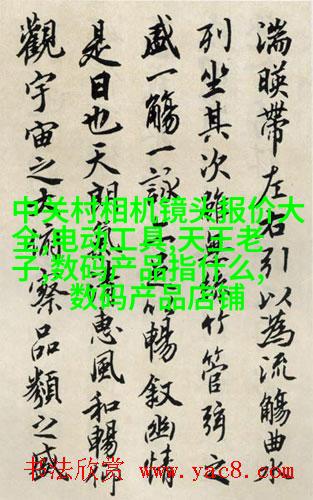 湍暎帶左右引以為流觴曲
列坐其次雖無絲竹管弦之
盛一觴一詠亦足以暢敘幽情
是日也天朗氣清惠風和暢仰
觀宇宙之大俯察品類之盛
中关村相机镜头报价大
全,电动工具,天王老
子,数码产品指什么,
数码产品店铺
书法欣赏 www.yac8.com